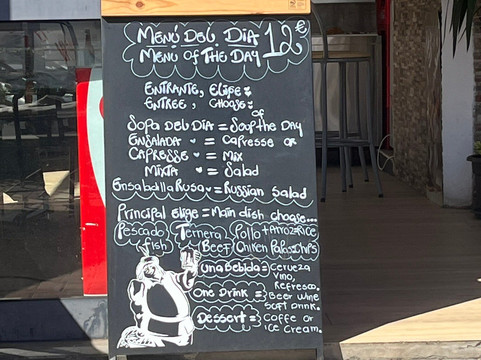 MENÚ DEL DÍA 12€
MENU OF THE DAY
ENTRANTE, Elige:
ENTREE, CHOOSE:
of
SOPA DEL DIA = SOUP THE DAY
ENSALADA " = CAPRESSE OR
CAPRESSE " = MIX
MIXTA " = Salad
Ensaladilla Rusa = Russian Salad
Principal elige = Main dish choose...
Pescado Ternera Pollo + Arroz = Rice
fish Beef Chicken Papas = Chips
Una Bebida = Cerveza
Vino,
Refresco,
One Drink = Beer Wine
Soft Drink.
Dessert = Coffe or
Ice Cream.